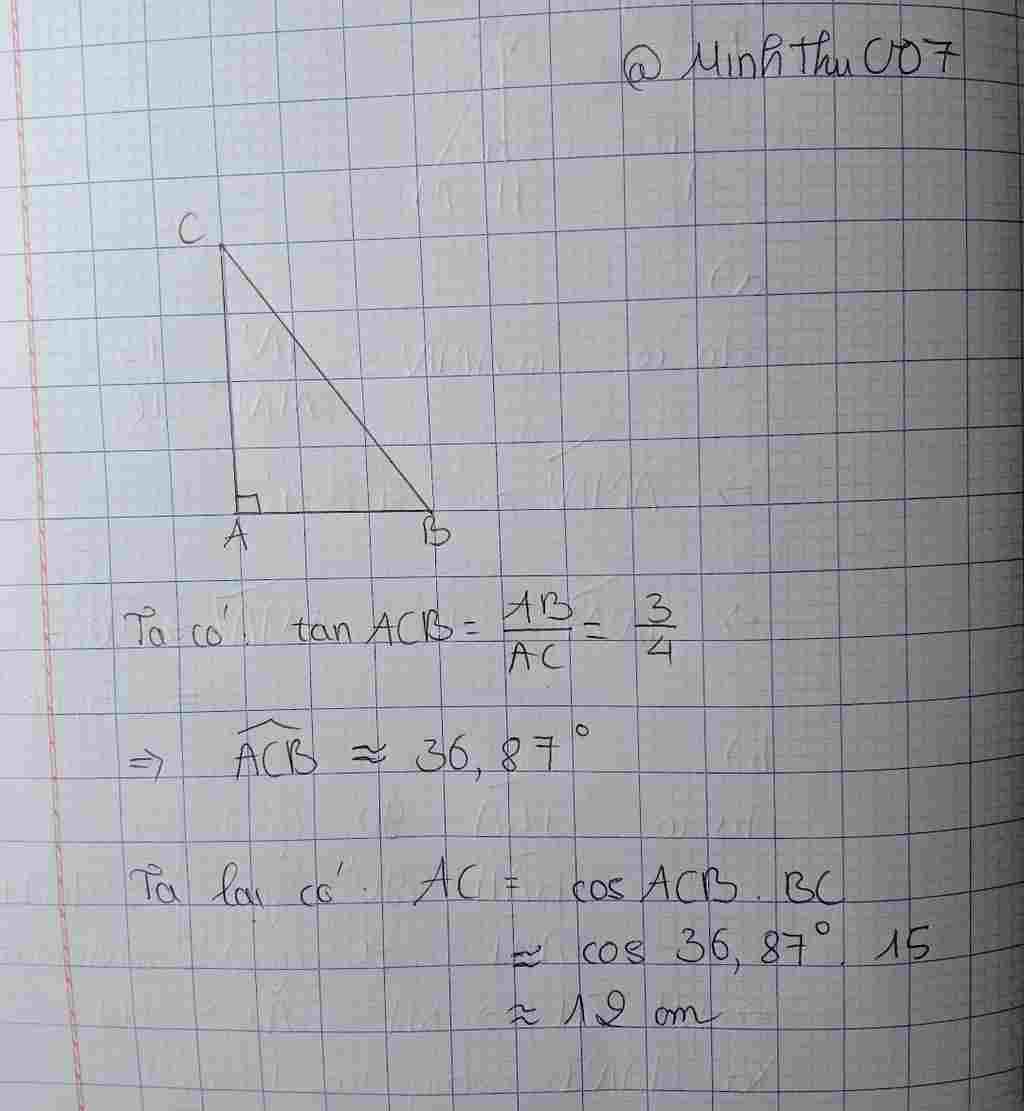 @ MinhThu007
C
A
B
Ta có: tan ACB = AB/AC = 3/4
=> \widehat{ACB} ≈ 36,87°
Ta lại có: AC = cos ACB . BC
≈ cos 36,87° . 15
≈ 12 cm